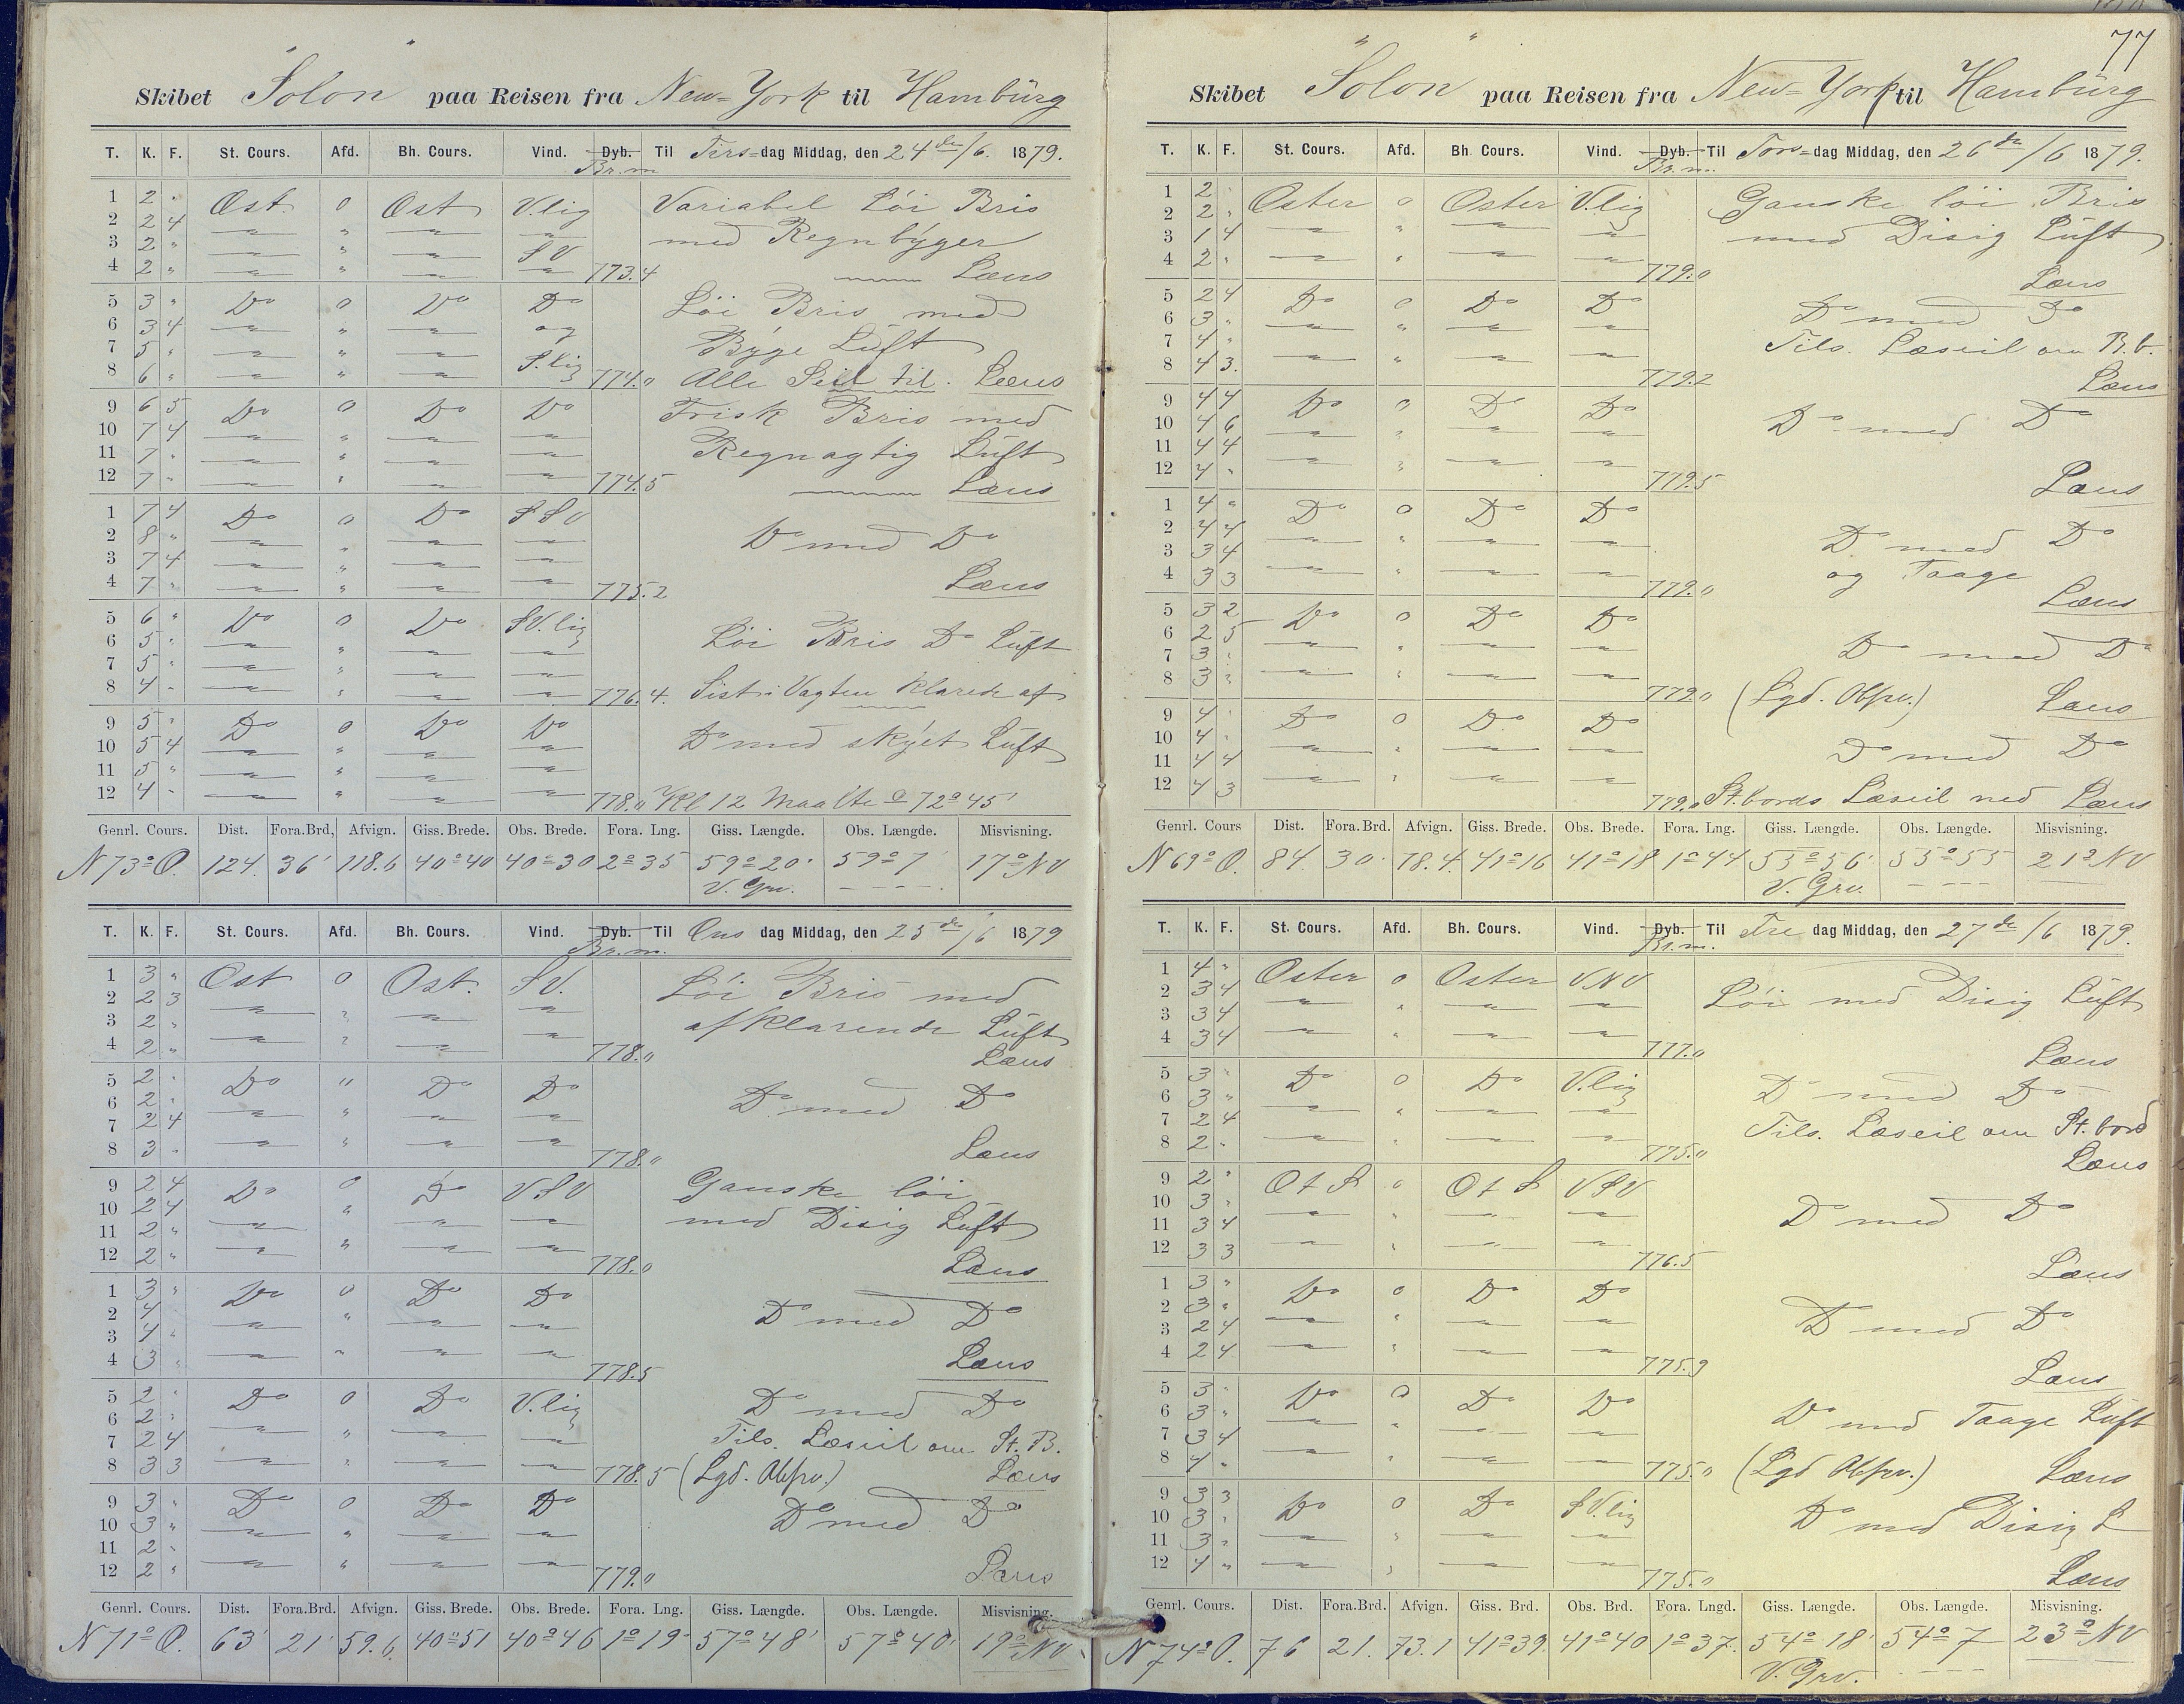 Skibet "Solon" paa Reisen fra New-York til Hamburg
T. K. F. St. Cours. Afd. Bh. Cours. Vind. Dyb. Til Tirs-dag Middag, den 24de/6. 1879.
Br.m
1 2 " Ost. 0 Ost V.lig Variabel Löi Bris
2 2 4 " " " " med Regnbÿger
3 2 " " " " SV
4 2 " " " " " 773.4 Læns
5 3 " Do 0 Do Do Löi Bris med
6 3 4 " " " og Bÿge Luft
7 5 " " " " S.lig
8 6 " " " " 774." Alle Seil til. Læns
9 6 5 Do 0 Do Do Frisk Bris med
10 7 4 " " " "
11 7 " " " " " Regnagtig Luft
12 7 " " " " " 774.5 Læns
1 7 4 Do 0 Do SSV
2 8 " " " " " Do med Do
3 7 4 " " " "
4 7 " " " " " 775.2 Læns
5 6 " Do 0 Do SV.lig
6 5 " " " " " Löi Bris Do Luft
7 5 " " " " "
8 4 " " " " " 776.4. Sist i Vagten klarede af
9 5 " Do 0 Do Do Do med skÿet Luft
10 5 4 " " " "
11 5 " " " " "
12 4 " " " " 778." Kl 12 Maalte 72° 45'
Genrl. Cours. Dist. Fora.Brd, Afvign. Giss. Brede. Obs. Brede. Fora. Lng. Giss. Længde. Obs. Længde. Misvisning.
N 73° O. 124. 36' 118.6 40°40 40°30 2°35 59°20' 59°7' 17° NV
V. Grv.
T. K. F. St. Cours. Afd. Bh. Cours. Vind. Dyb. Til Ons dag Middag, den 25de/6 1879
Br.m.
1 3 " Ost 0 Ost. SV. Löi Bris med
2 2 3 " " " "
3 2 " " " " " afklarende Luft
4 2 " " " " " 778." Læns
5 2 " Do " Do Do
6 2 " " " " " Do med Do
7 2 4 " " " "
8 3 " " " " " 778." Læns
9 2 4 Do 0 Do VSV Ganske löi
10 2 4 " " " " med Disig Luft
11 2 " " " " "
12 2 " " " " " 778.0 Læns
1 3 " Do 0 Do Do
2 4 " " " " " Do med Do
3 4 " " " " "
4 3 " " " " " 778.5 Læns
5 2 " Do 0 Do V.lig Do med Do
6 2 " " " " "
7 2 4 " " " " Tils. Læseil om St. B.
8 3 3 " " " " 778.5 (Lgd. Obsrv.) Læns
9 3 " Do 0 Do Do Do med Do
10 3 " " " " "
11 2 " " " " "
12 2 " " " " " 779." Læns
Genrl. Cours. Dist. Fora.Brd. Afvign. Giss. Brede. Obs. Brede. Fora. Lng. Giss. Længde. Obs. Længde. Misvisning.
N 71° O. 63' 21' 59.6. 40°51 40°46 1°19' 57°48' 57°40' 19° NV
77
Skibet "Solon" paa Reisen fra New-York til Hamburg
T. K. F. St. Cours. Afd. Bh. Cours. Vind. Dyb. Til Tors-dag Middag, den 26de/6 1879.
Br.m.
1 2 " Oster 0 Oster V.lig Ganske löi Bris
2 2 " " " " " med Disig Luft
3 1 4 " " " "
4 2 " " " " " 779.0 Læns
5 2 4 Do 0 Do Do Do med Do
6 3 " " " " "
7 4 " " " " " Tils. Læseil om B.b.
8 4 3. " " " " 779.2 Læns
9 4 4 Do " Do Do Do med Do
10 4 6 " " " "
11 4 4 " " " "
12 4 " " " " " 779.5 Læns
1 4 " Do 0 Do Do
2 4 4 " " " " Do med Do
3 3 4 " " " " og Taage
4 3 3 " " " " 779.0 Læns
5 3 2 Do 0 Do Do
6 2 5 " " " " Do med Do
7 3 " " " " "
8 3 " " " " " 779." (Lgd. Obsrv.) Læns
9 4 " Do 0 Do Do
10 4 " " " " " Do med Do
11 4 4 " " " "
12 4 3 " " " " 779." St.bords Læseil ned Læns
Genrl. Cours Dist. Fora.Brd. Afvign. Giss. Brede. Obs. Brede. Fora. Lng. Giss. Længde. Obs. Længde. Misvisning.
N 69° O. 84. 30' 78.4. 41°16 41°18 1°44 55°56' 55°55 21° NV
V. Grv.
T. K. F. St. Cours. Afd. Bh. Cours. Vind. Dyb. Til Fre dag Middag, den 27de/6 1879.
Br.m.
1 4 " Oster 0 Oster VNV
2 3 4 " " " " Löi med Disig Luft
3 3 4 " " " "
4 3 4 " " " " 777.0 Læns
5 3 " Do 0 Do V.lig Do med Do
6 3 " " " " "
7 2 4 " " " " Tils. Læseil om St.bord
8 2 " " " " " 775." Læns
9 2 " O t S 0 O t S VSV
10 3 " " " " " Do med Do
11 3 4 " " " "
12 3 3 " " " " 776.5 Læns
1 3 " Do 0 Do Do
2 3 " " " " " Do med Do
3 2 4 " " " "
4 2 4 " " " " 775.9 Læns
5 3 " Do 0 Do Do
6 3 " " " " " Do med Taage Luft
7 3 4 " " " "
8 4 " " " " " 775." (Lgd Obsrv.) Læns
9 3 3 Do 0 Do SV.lig
10 3 " " " " " Do med Disig L
11 3 " " " " "
12 4 " " " " " 775.0 Læns
Genrl. Cours. Dist. Fora.Brd. Afvign. Giss. Brd. Obs. Brd. Fora. Lngd. Giss. Længde. Obs. Længde. Misvisning.
N 74° O. 76 21. 73.1 41°39. 41°40 1°37. 54°18' 54°7 23° NV
V. Grv.